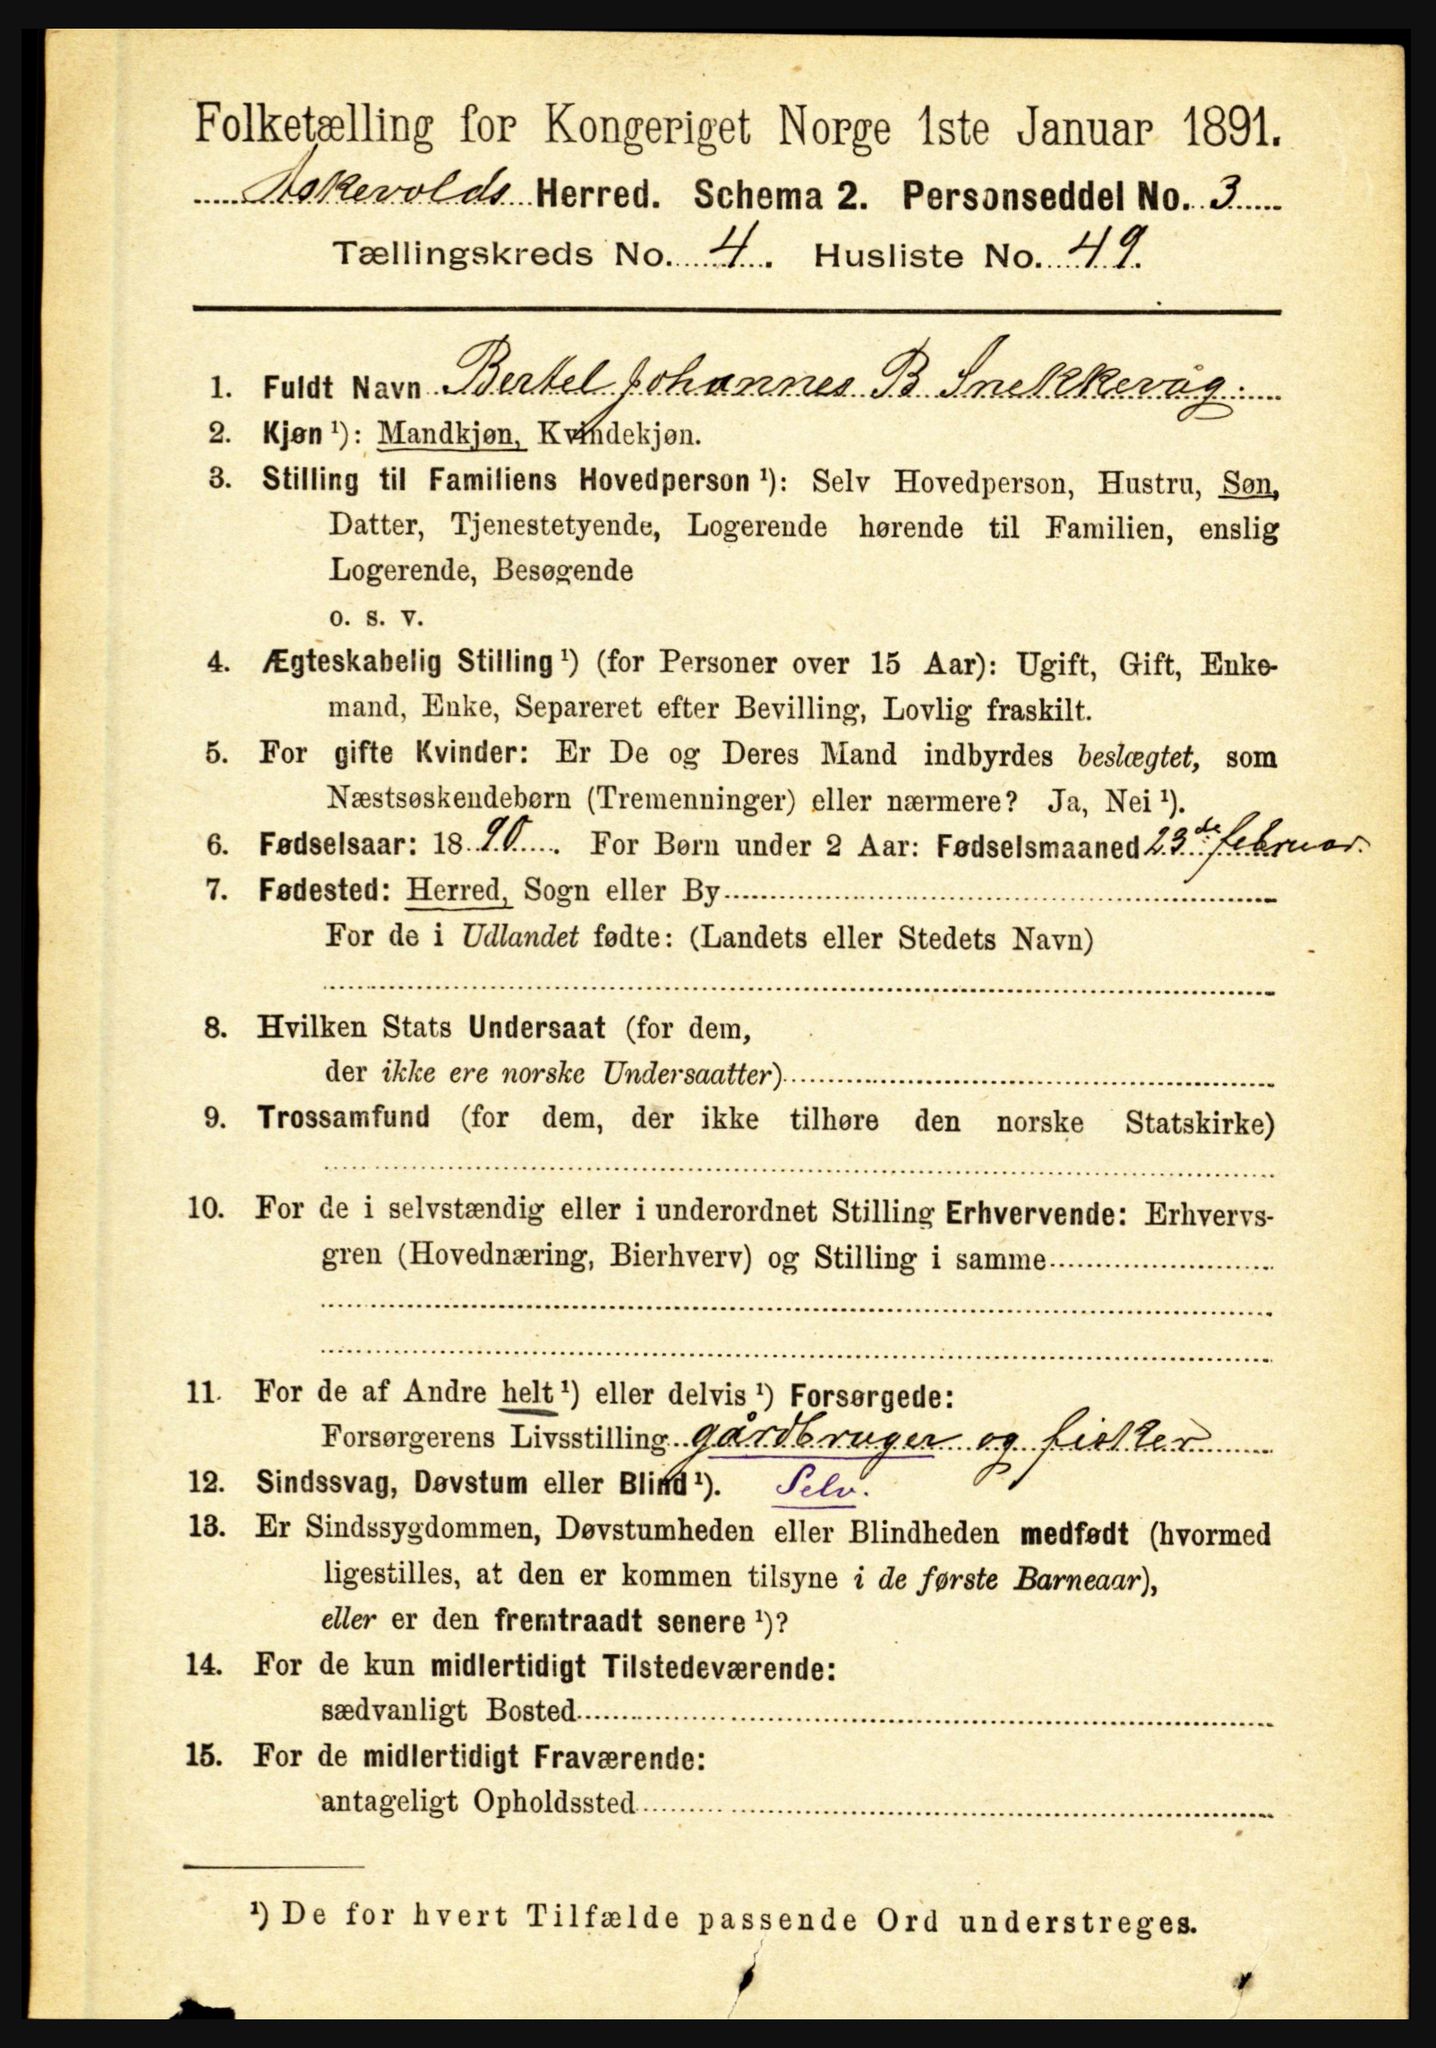 Folketælling for Kongeriget Norge 1ste Januar 1891.
Askevolds Herred. Schema 2. Personseddel No. 3
Tællingskreds No. 4. Husliste No. 49.
1. Fuldt Navn Bertel Johannes B Snekkevåg.
2. Kjøn ¹): Mandkjøn, Kvindekjøn.
3. Stilling til Familiens Hovedperson ¹): Selv Hovedperson, Hustru, Søn,
Datter, Tjenestetyende, Logerende hørende til Familien, enslig
Logerende, Besøgende
o. s. v.
4. Ægteskabelig Stilling ¹) (for Personer over 15 Aar): Ugift, Gift, Enke-
mand, Enke, Separeret efter Bevilling, Lovlig fraskilt.
5. For gifte Kvinder: Er De og Deres Mand indbyrdes beslægtet, som
Næstsøskendebørn (Tremenninger) eller nærmere? Ja, Nei ¹).
6. Fødselsaar: 1890. For Børn under 2 Aar: Fødselsmaaned 23de februar.
7. Fødested: Herred, Sogn eller By
For de i Udlandet fødte: (Landets eller Stedets Navn)
8. Hvilken Stats Undersaat (for dem,
der ikke ere norske Undersaatter)
9. Trossamfund (for dem, der ikke tilhøre den norske Statskirke)
10. For de i selvstændig eller i underordnet Stilling Erhvervende: Erhvervs-
gren (Hovednæring, Bierhverv) og Stilling i samme
11. For de af Andre helt ¹) eller delvis ¹) Forsørgede:
Forsørgerens Livsstilling gårdbruger og fisker
12. Sindssvag, Døvstum eller Blind ¹). Selv.
13. Er Sindssygdommen, Døvstumheden eller Blindheden medfødt (hvormed
ligestilles, at den er kommen tilsyne i de første Barneaar),
eller er den fremtraadt senere ¹)?
14. For de kun midlertidigt Tilstedeværende:
sædvanligt Bosted
15. For de midlertidigt Fraværende:
antageligt Opholdssted
¹) De for hvert Tilfælde passende Ord understreges.